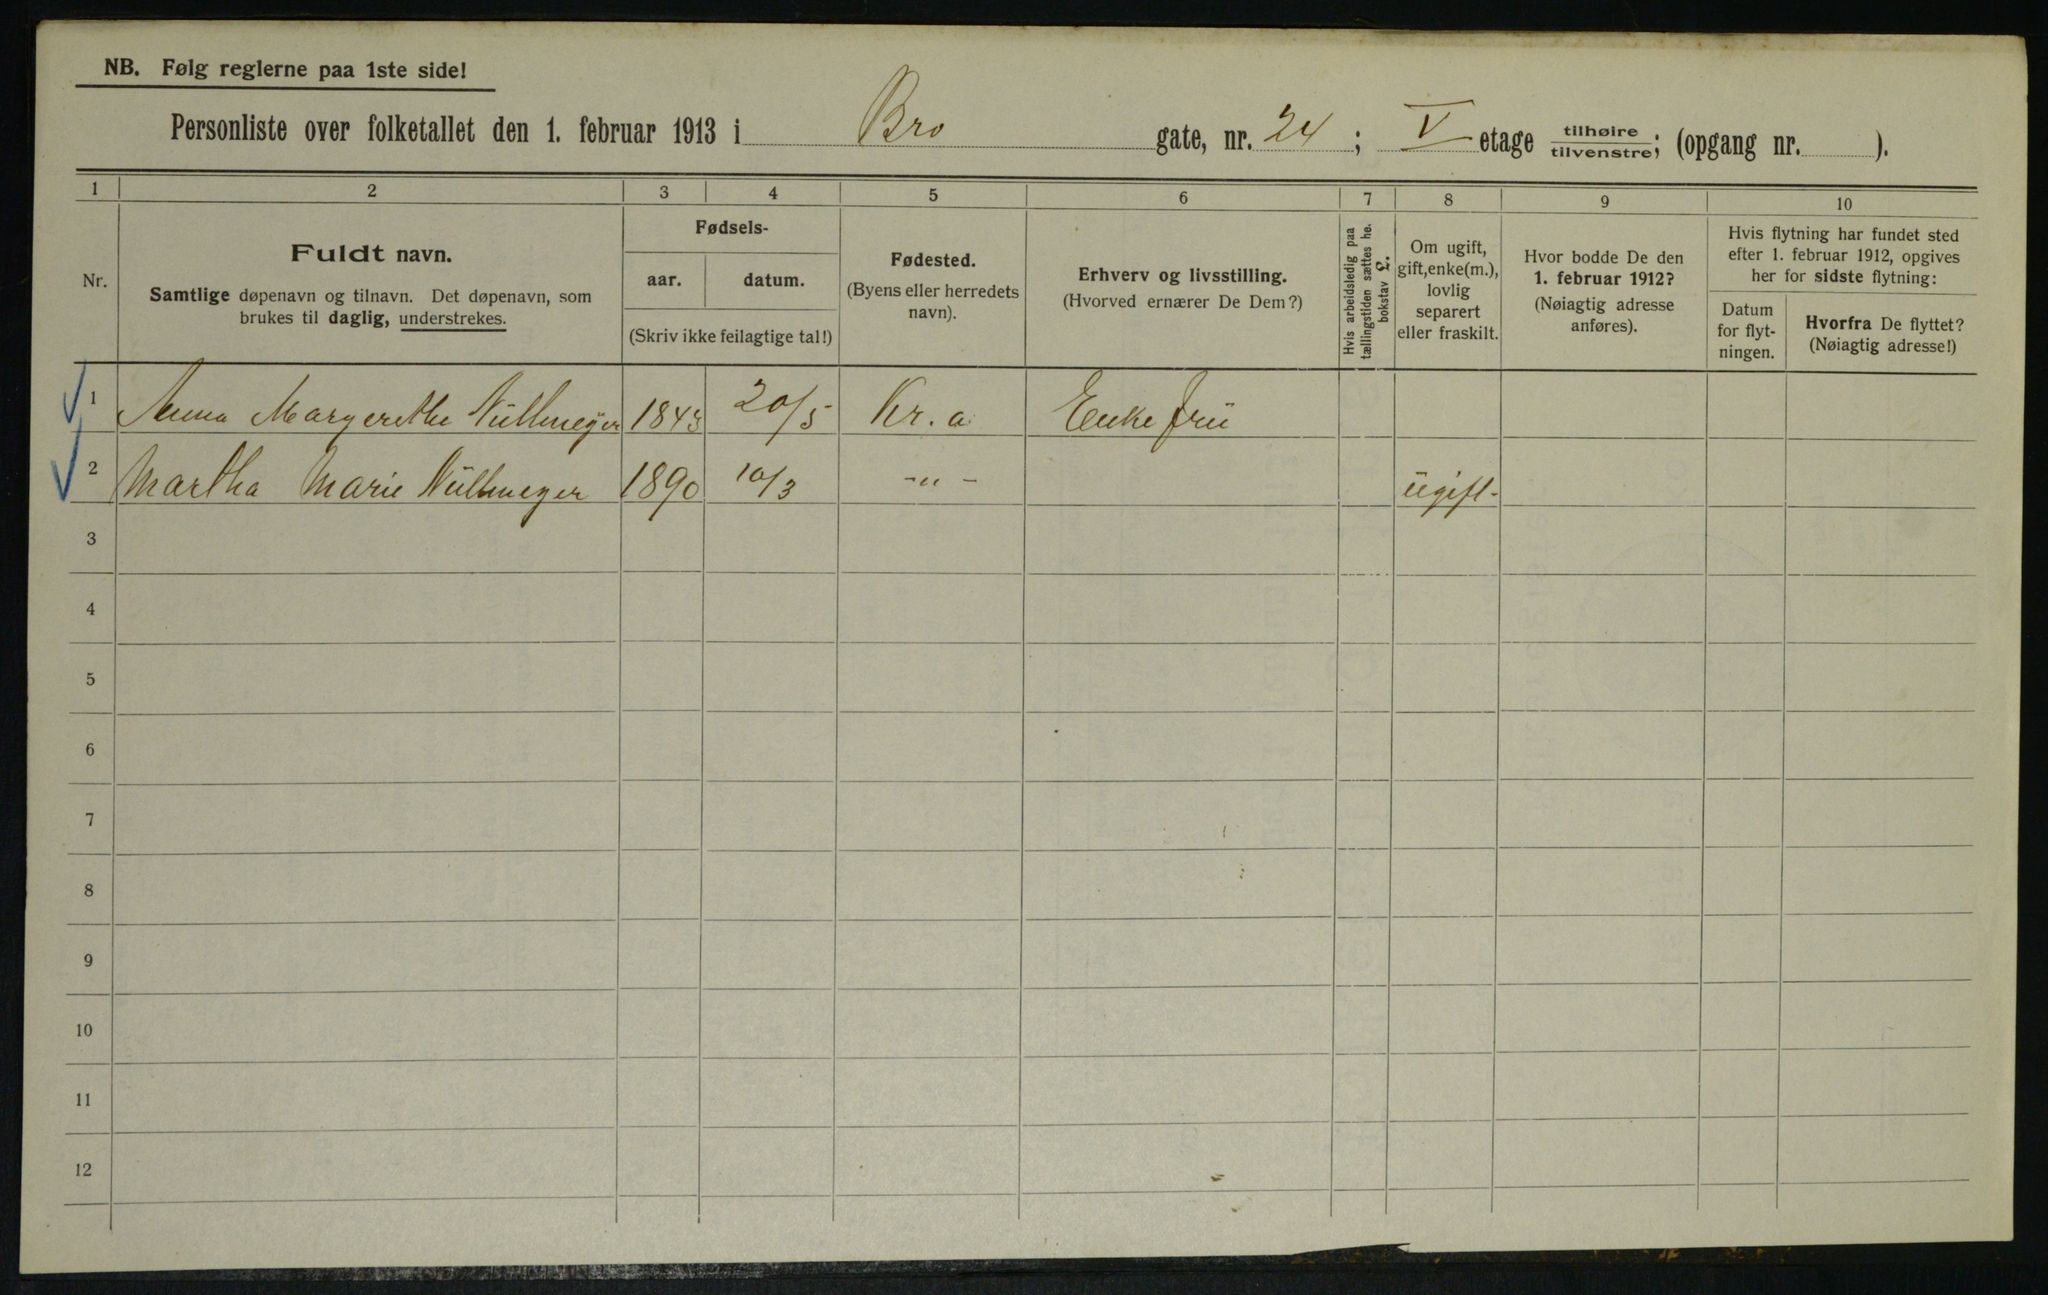 NB. Følg reglerne paa 1ste side!
Personliste over folketallet den 1. februar 1913 i Bro gate, nr. 24; V etage tilhøire/tilvenstre; (opgang nr. ).
1 2 3 4 5 6 7 8 9 10
Nr.
Fuldt navn.
Samtlige døpenavn og tilnavn. Det døpenavn, som
brukes til daglig, understrekes.
Fødsels-
aar. datum.
(Skriv ikke feilagtige tal!)
Fødested.
(Byens eller herredets
navn).
Erhverv og livsstilling.
(Hvorved ernærer De Dem?)
Hvis arbeidsledig paa
tællingstiden sættes he.
bokstav L.
Om ugift,
gift, enke(m.),
lovlig
separert
eller fraskilt.
Hvor bodde De den
1. februar 1912?
(Nøiagtig adresse
anføres).
Hvis flytning har fundet sted
efter 1. februar 1912, opgives
her for sidste flytning:
Datum
for flyt-
ningen.
Hvorfra De flyttet?
(Nøiagtig adresse!)
1 Anna Margerethe Nüllmeyer 1843 20/5 Kr.a Enkefrü
2 Martha Marie Nüllmeyer 1890 10/3 -"- ügift-
3
4
5
6
7
8
9
10
11
12